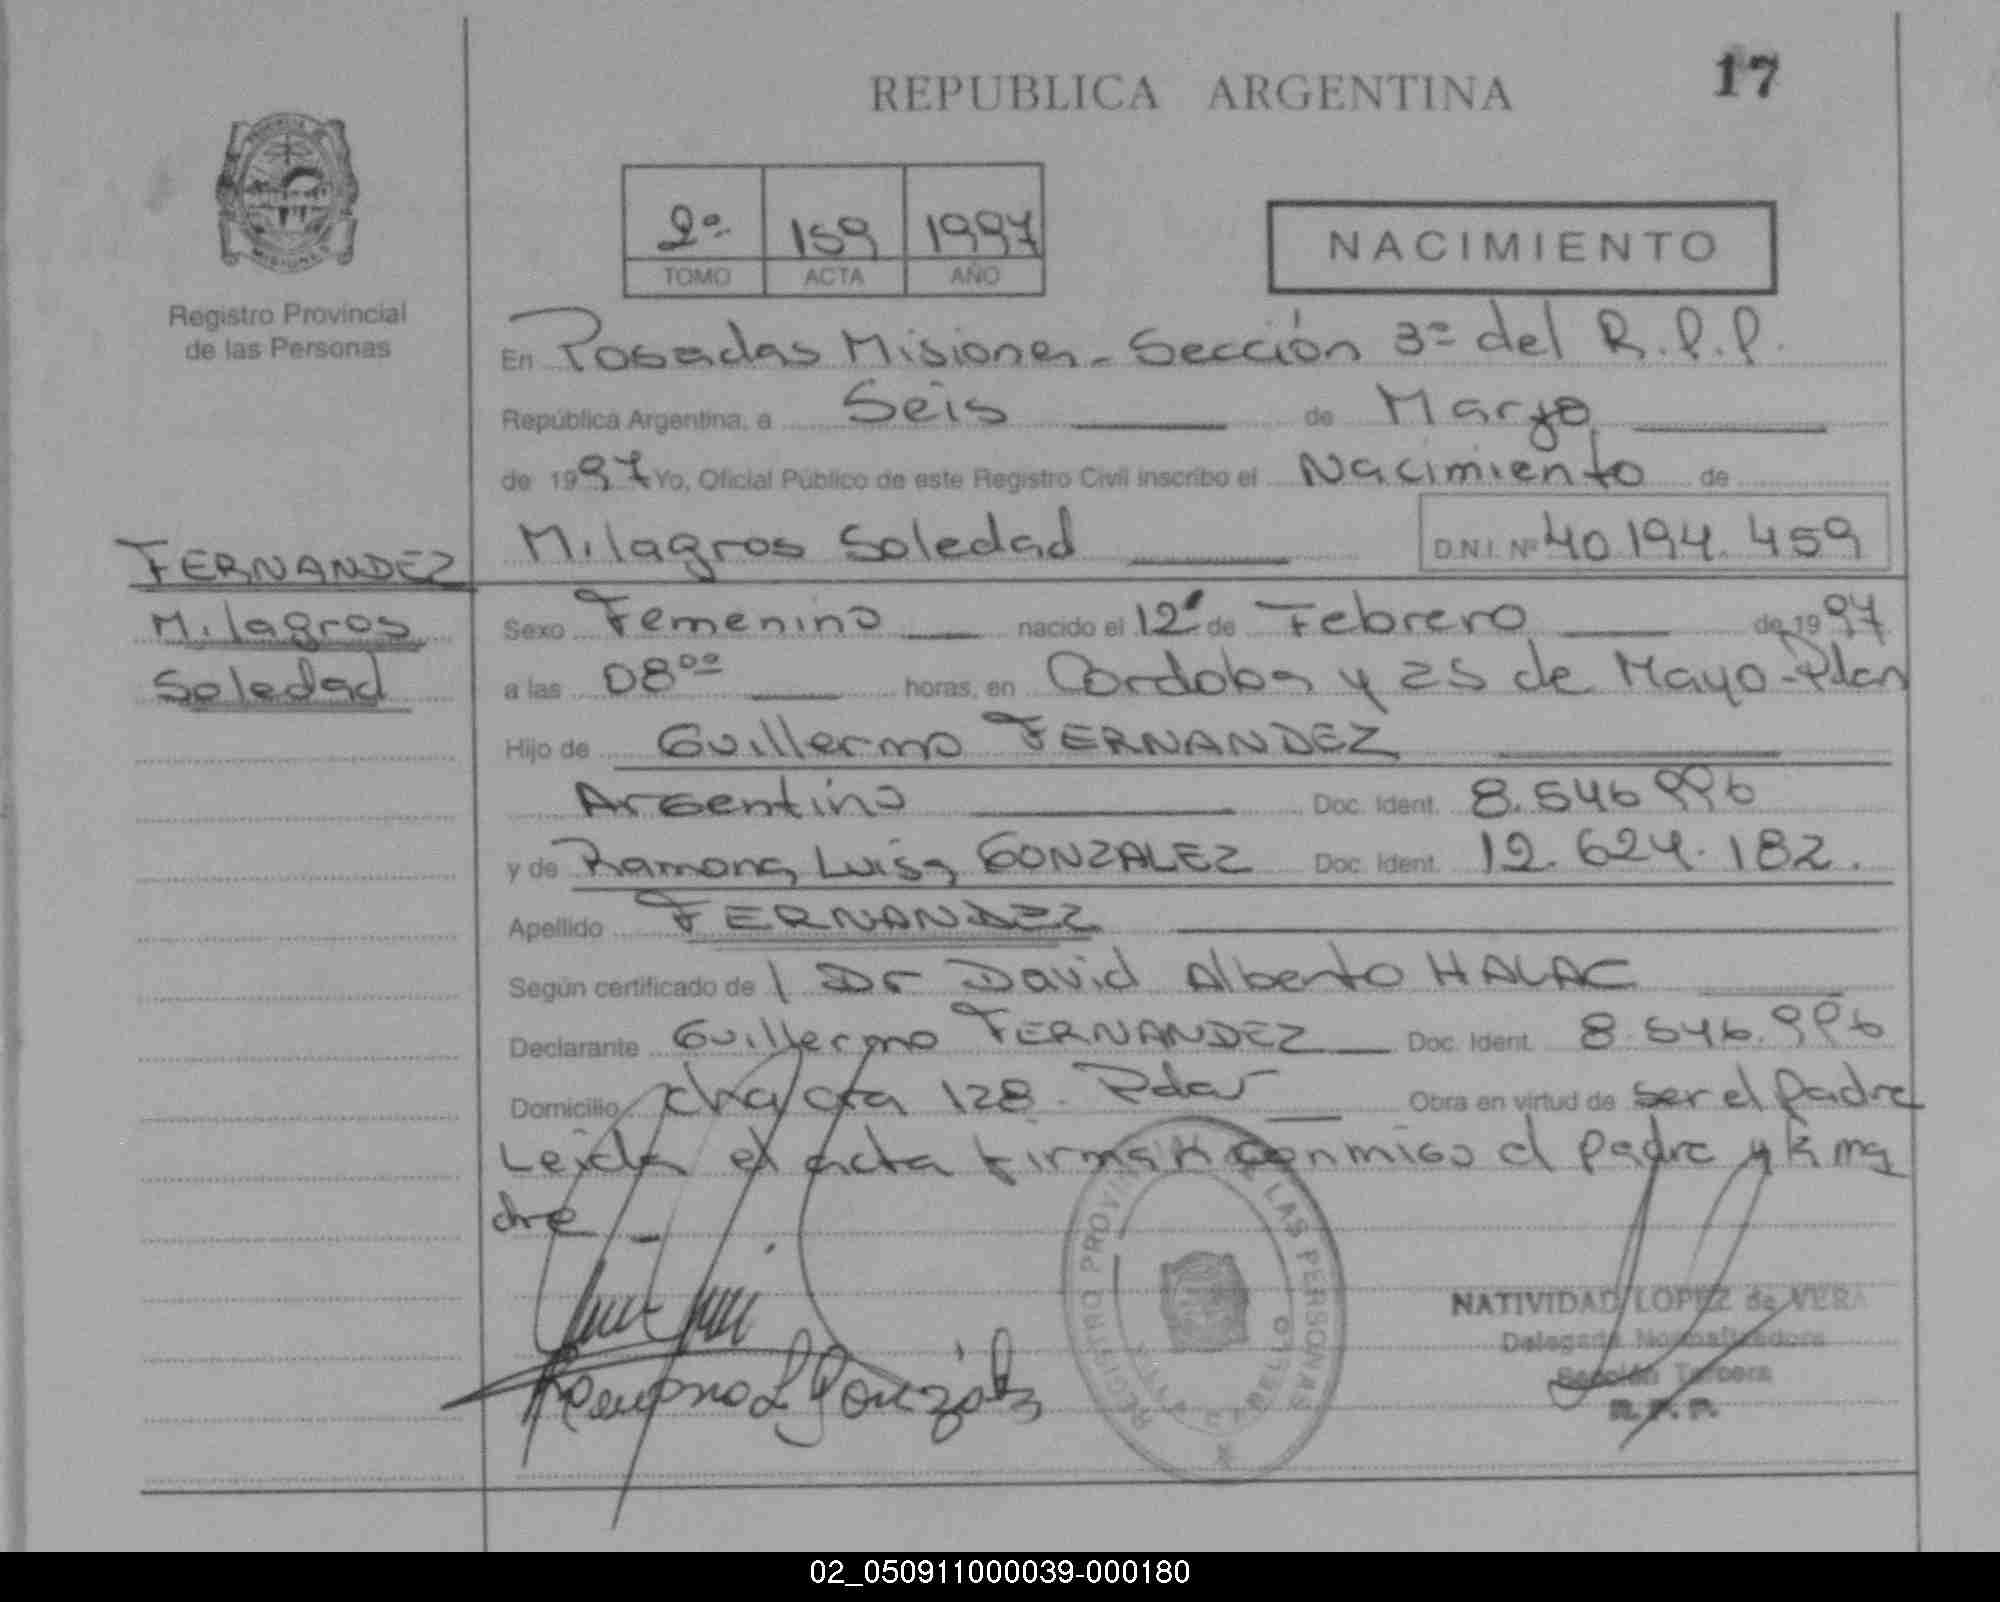 REPUBLICA ARGENTINA
17
PROVINCIA DE
MISIONES
Registro Provincial
de las Personas
2º 159 1997
TOMO ACTA AÑO
NACIMIENTO
En Posadas Misiones - Sección 3º del R.P.P.
República Argentina, a Seis de Marzo
de 1997 Yo, Oficial Público de este Registro Civil inscribo el Nacimiento de
Milagros Soledad D.N.I. Nº 40.194.459
FERNANDEZ
Milagros
Soledad
Sexo Femenino nacido el 12 de Febrero de 1997
a las 08ºº horas, en Cordoba y 25 de Mayo - Pdas
Hijo de Guillermo FERNANDEZ
Argentino Doc. Ident. 8.546996
y de Ramona Luisa GONZALEZ Doc. Ident. 12.624.182.
Apellido FERNANDEZ
Según certificado de l Dr David Alberto HALAC
Declarante Guillermo FERNANDEZ Doc. Ident. 8.546.996
Domicilio chacra 128. Pdas Obra en virtud de ser el padre
Leida el acta firman conmigo el padre y la ma
dre -
Ramona L Gonzalez
REGISTRO PROVINCIAL DE LAS PERSONAS
VILLA CABELLO
NATIVIDAD LOPEZ de VERA
Delegada Normalizadora
Sección Tercera
R.P.P.
02_050911000039-000180